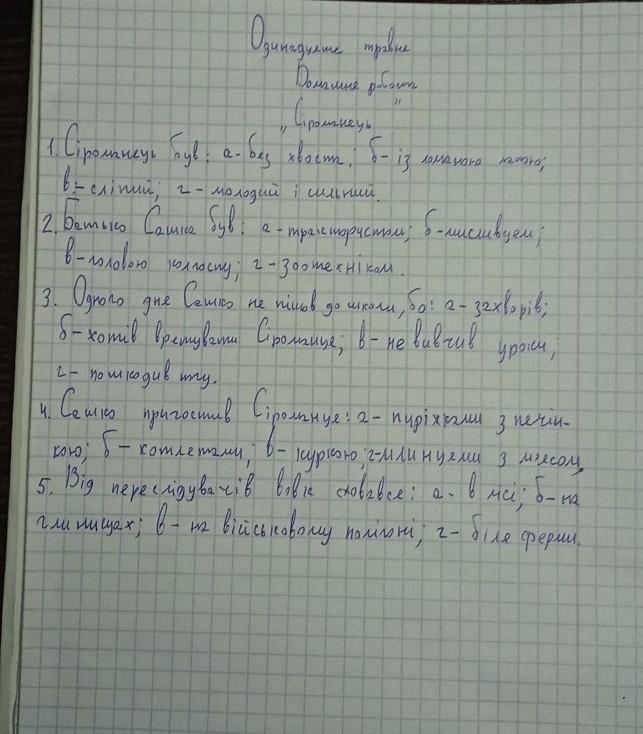 Одинадцяте травня
Домашня робота
„Сіроманець”
1. Сіроманець був: а - без хвоста; б - із ломаною ногою;
в - сліпий; г - молодий і сильний.
2. Батько Сашка був: а - трактористом; б - мисливцем;
в - головою колгоспу; г - зоотехніком.
3. Одного дня Сашко не пішов до школи, бо: а - захворів;
б - хотів врятувати Сіроманця; в - не вивчив уроки;
г - пошкодив ногу.
4. Сашко пригостив Сіроманця: а - пиріжками з печін-
кою; б - котлетами; в - куркою; г - млинцями з м'ясом.
5. Від переслідувачів вовк сховався: а - в лісі; б - на
глинищах; в - на військовому полігоні; г - біля ферми.